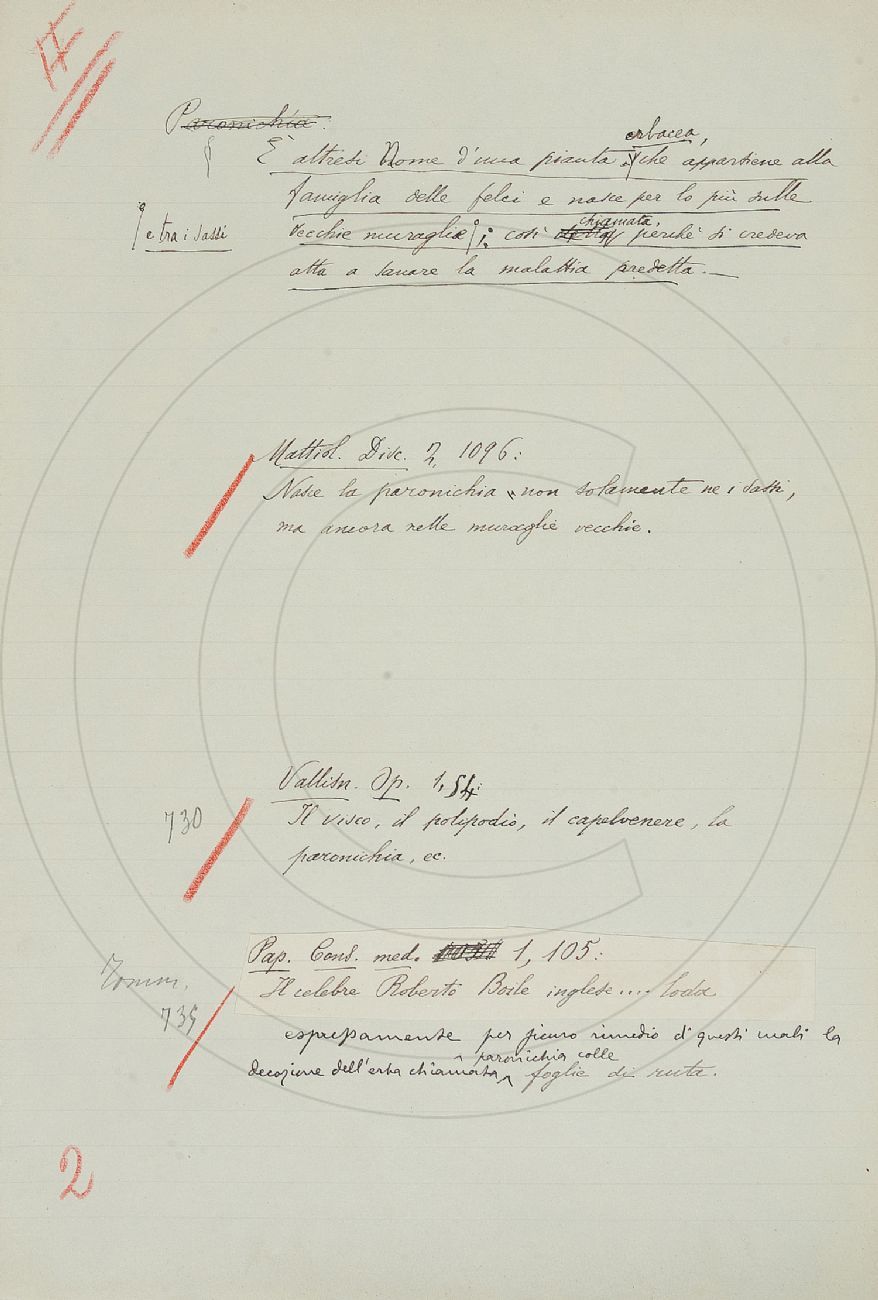 II
Paronichia.
È altresì Nome d'una pianta erbacea, che appartiene alla
famiglia delle felci e nasce per lo più sulle
e tra i sassi
vecchie muraglie; così chiamata, perché si credeva
atta a sanare la malattia predetta. —
Mattiol. Disc. 2, 1096:
Nasce la paronichia non solamente ne i sassi,
ma ancora nelle muraglie vecchie.
Vallisn. Op. 1, 54:
730
Il visco, il polipodio, il capelvenere, la
paronichia, ec.
Pap. Cons. med. 1, 105:
Tomm.
Il celebre Roberto Boile inglese.... loda
735
espressamente per sicuro rimedio di questi mali la
decozione dell'erba chiamata paronichia colle
foglie di ruta.
2